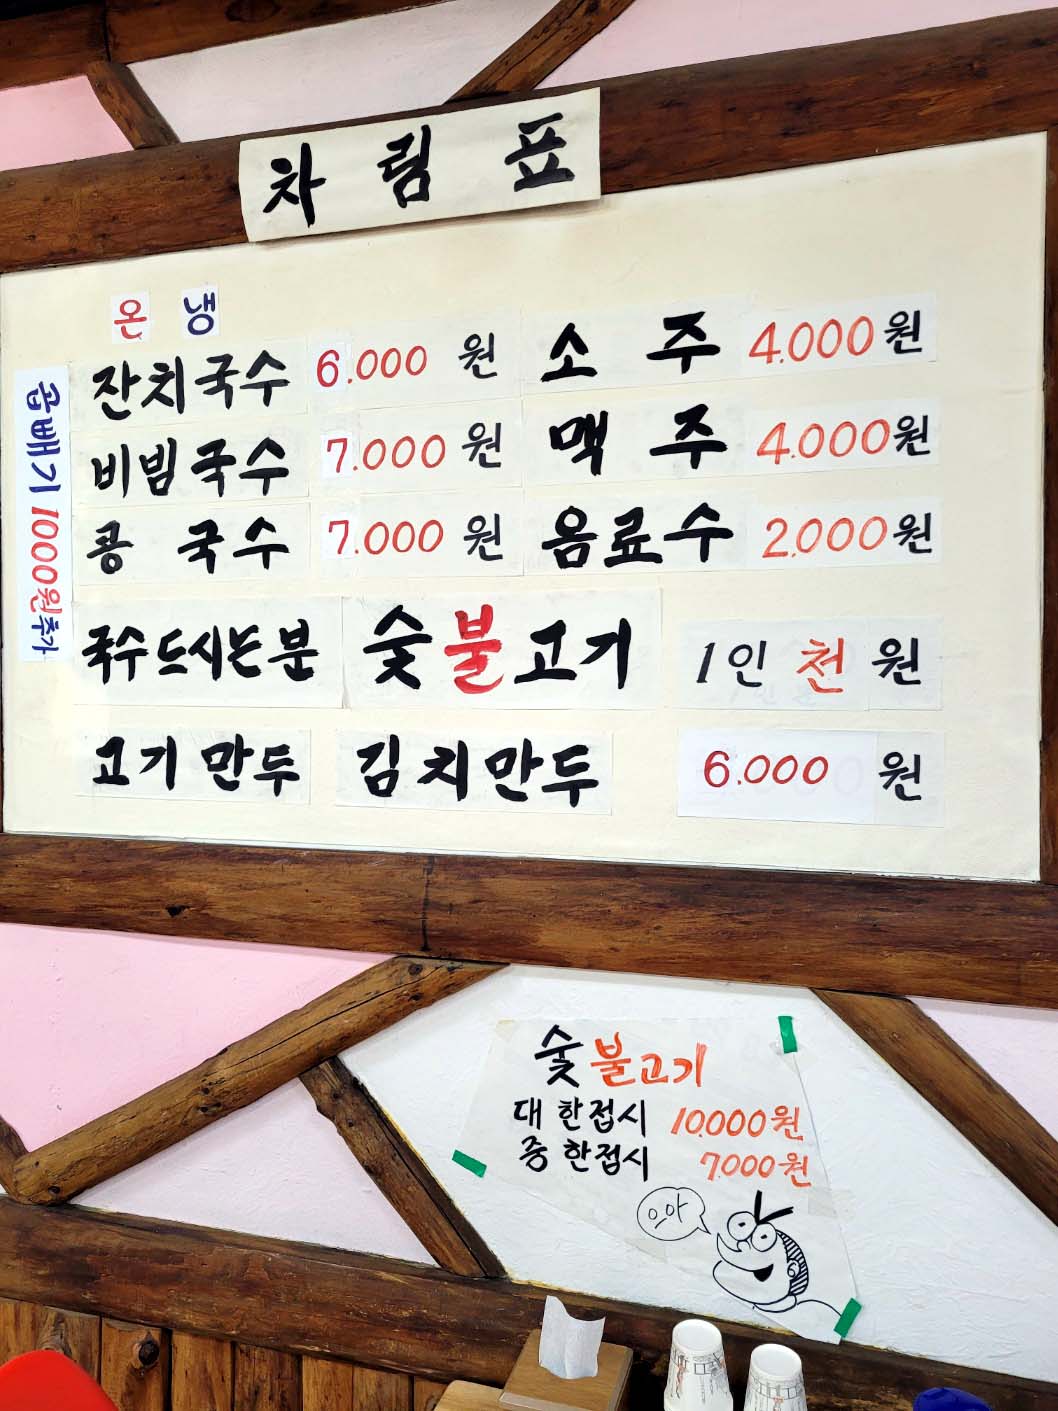 차림표
온 냉
잔치국수 6.000원 소주 4.000원
비빔국수 7.000원 맥주 4.000원
콩국수 7.000원 음료수 2.000원
곱배기 1000원추가
국수드시는분 숯불고기 1인 천원
고기만두 김치만두 6.000원
숯불고기
대 한접시 10.000원
중 한접시 7.000원
으아